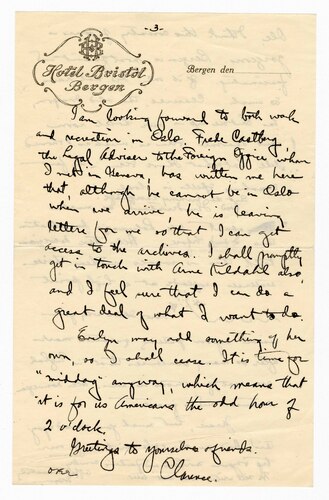 -3-
HB
Hotel Bristol
Bergen
Bergen den
I am looking forward to both work
and recreation in Oslo. Frede Castberg,
the Legal Adviser to the Foreign Office, whom
I met in Geneva, has written me here
that, although he cannot be in Oslo
when we arrive, he is leaving
letters for me so that I can get
access to the archives. I shall promptly
get in touch with Arne Kildahl also,
and I feel sure that I can do a
great deal of what I want to do.
Evelyn may add something of her
own, so I shall cease. It is time for
"middag" anyway, which means that
it is for us Americans the odd hour of
2 o'clock.
Greetings to yourselves & friends.
Clarence.